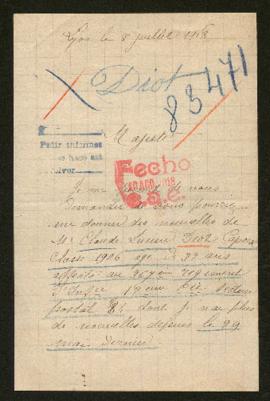 Lyon le 8 juillet 1918
Diot
83471
Majesté
Pedir informes
Fecho
AGO 1918
S.E.
Je me de vous
demander si vous pourriez
me donner des nouvelles de
Mr Claude Diot Caporal
Classe 1906 age de 32 ans
au 267e regiment
d'Infie 19eme Cie Secteur
postal dont je n'ai plus
de nouvelles depuis le 29
mai dernier